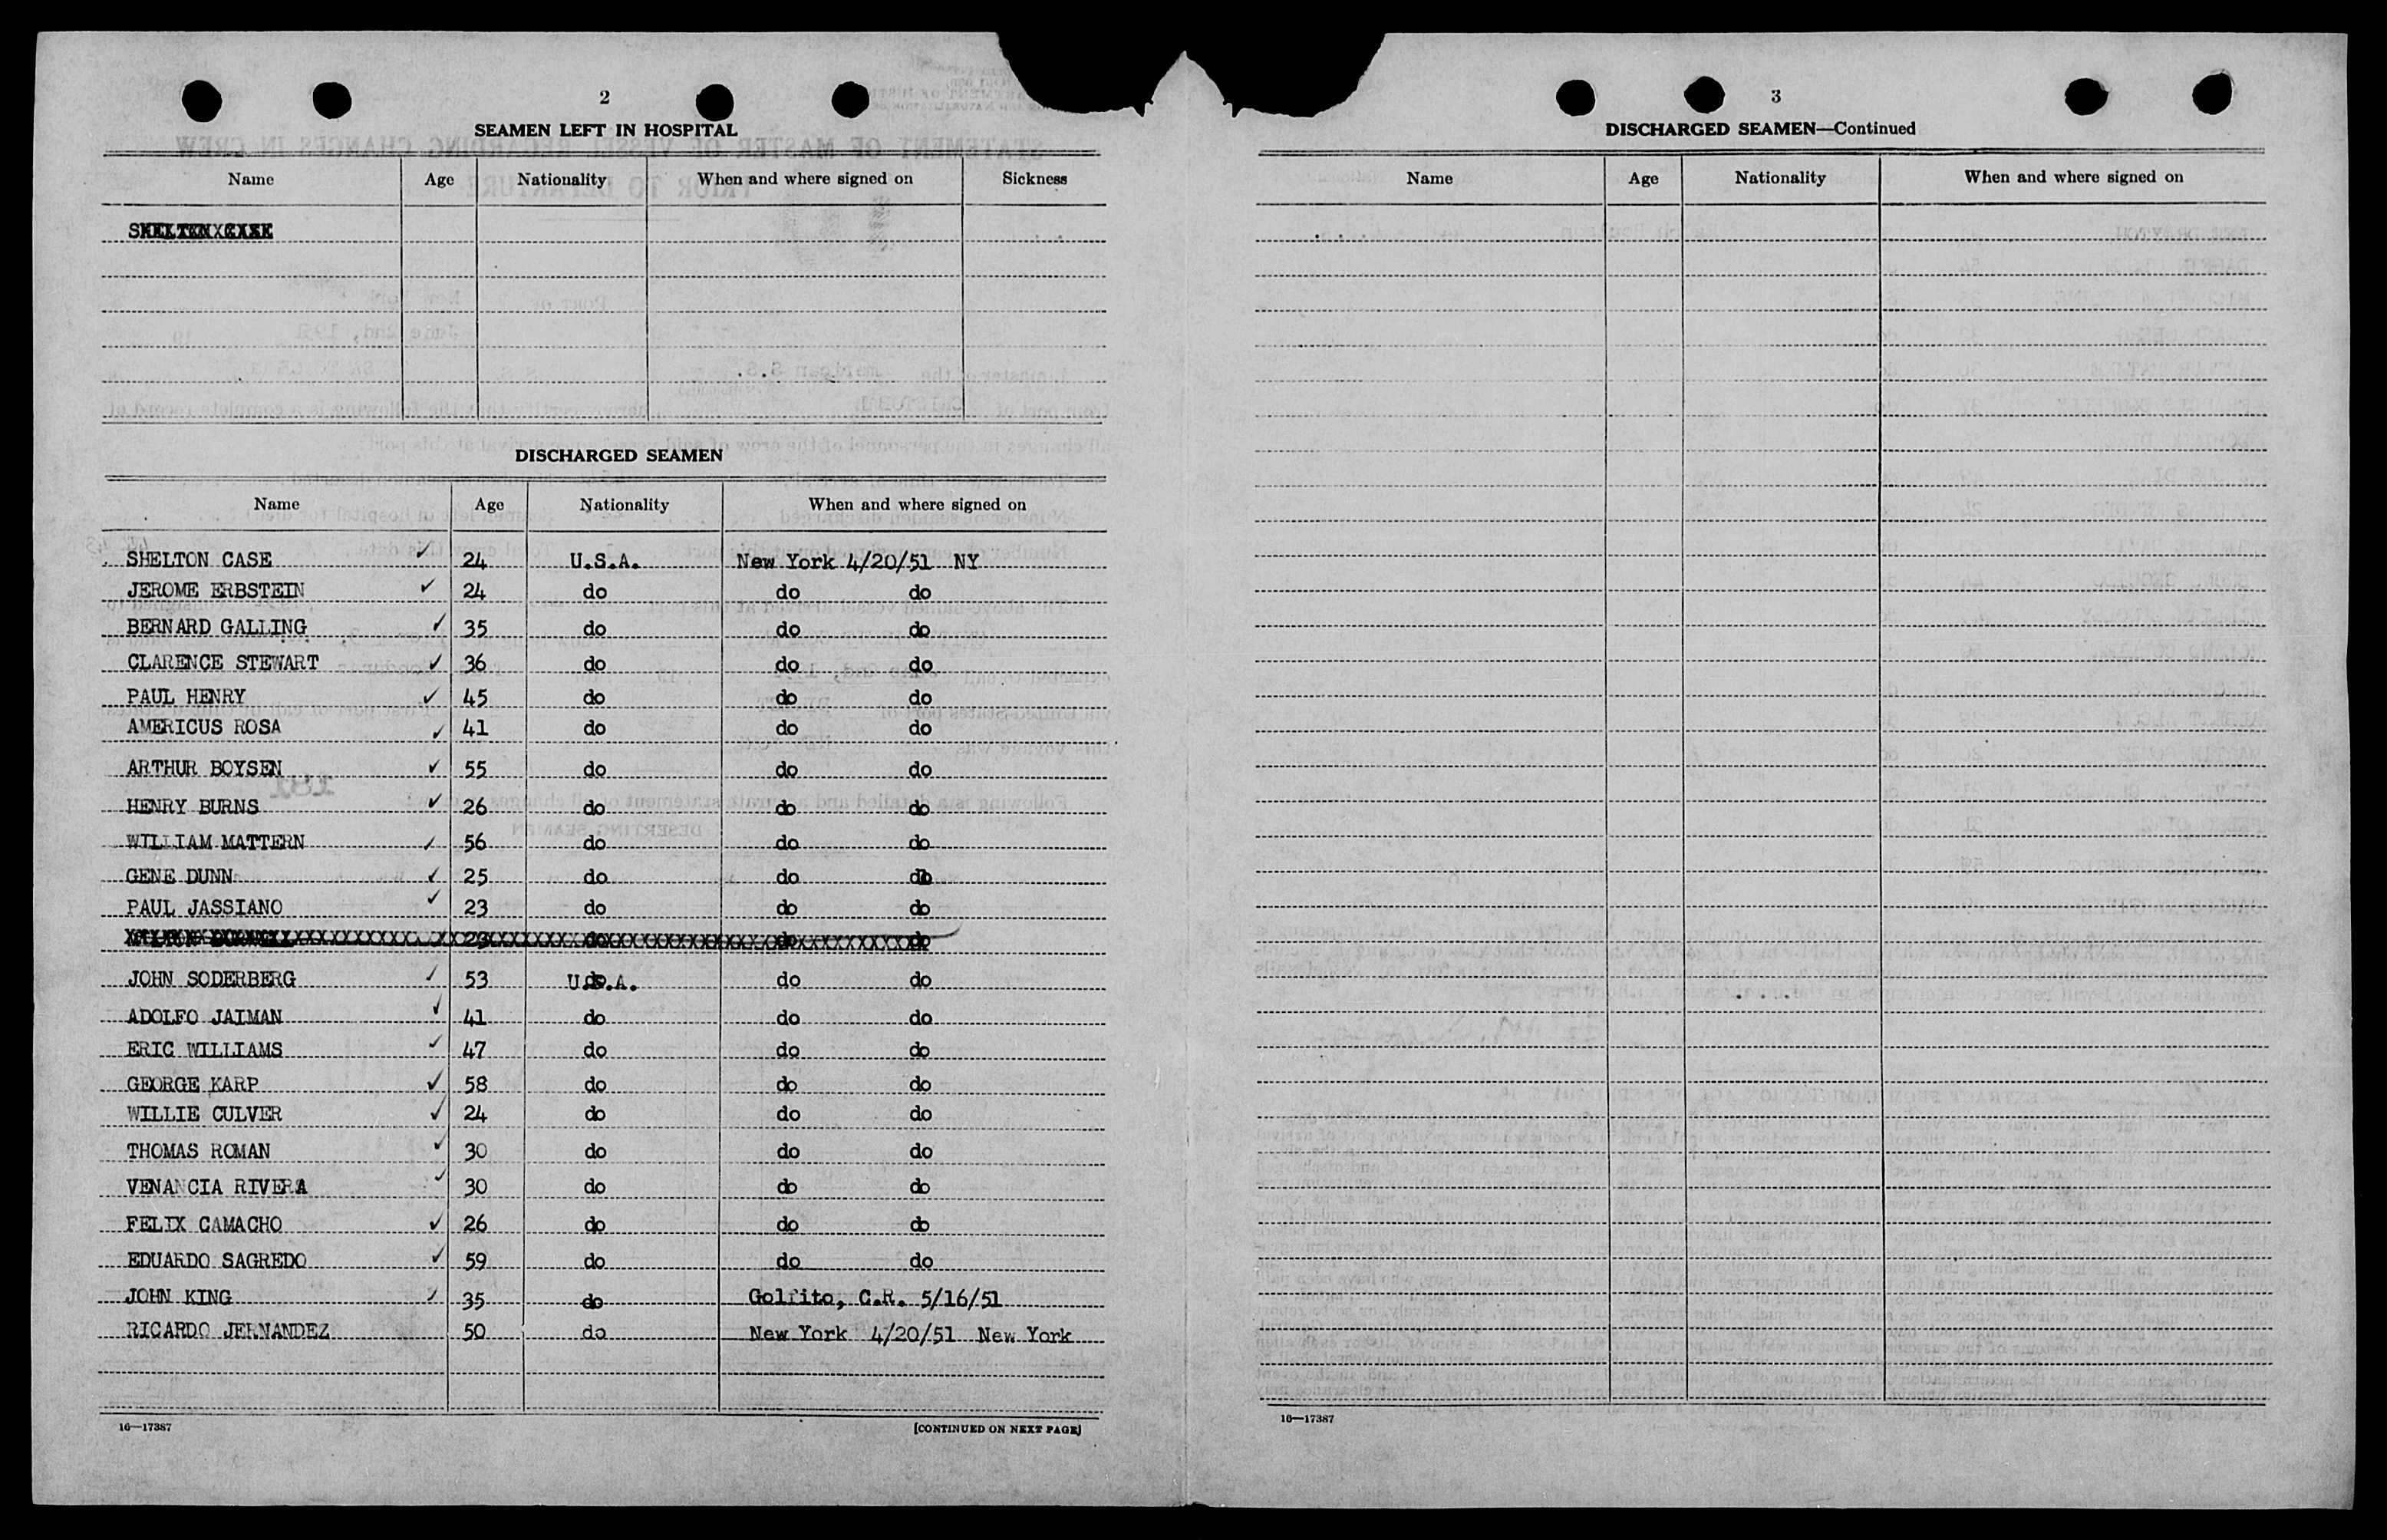 2
SEAMEN LEFT IN HOSPITAL
Name Age Nationality When and where signed on Sickness
DISCHARGED SEAMEN
Name Age Nationality When and where signed on
SHELTON CASE ✓ 24 U.S.A. New York 4/20/51 NY
JEROME ERBSTEIN ✓ 24 do do do
BERNARD GALLING ✓ 35 do do do
CLARENCE STEWART ✓ 36 do do do
PAUL HENRY ✓ 45 do do do
AMERICUS ROSA ✓ 41 do do do
ARTHUR BOYSEN ✓ 55 do do do
HENRY BURNS ✓ 26 do do do
WILLIAM MATTERN ✓ 56 do do do
GENE DUNN ✓ 25 do do do
PAUL JASSIANO ✓ 23 do do do
JOHN SODERBERG ✓ 53 U.S.A. do do
ADOLFO JAIMAN ✓ 41 do do do
ERIC WILLIAMS ✓ 47 do do do
GEORGE KARP ✓ 58 do do do
WILLIE CULVER ✓ 24 do do do
THOMAS ROMAN ✓ 30 do do do
VENANCIA RIVERA ✓ 30 do do do
FELIX CAMACHO ✓ 26 do do do
EDUARDO SAGREDO ✓ 59 do do do
JOHN KING ✓ 35 do Golfito, C.R. 5/16/51
RICARDO JERNANDEZ 50 do New York 4/20/51 New York
16—17387 [CONTINUED ON NEXT PAGE]
3
DISCHARGED SEAMEN—Continued
Name Age Nationality When and where signed on
16—17387